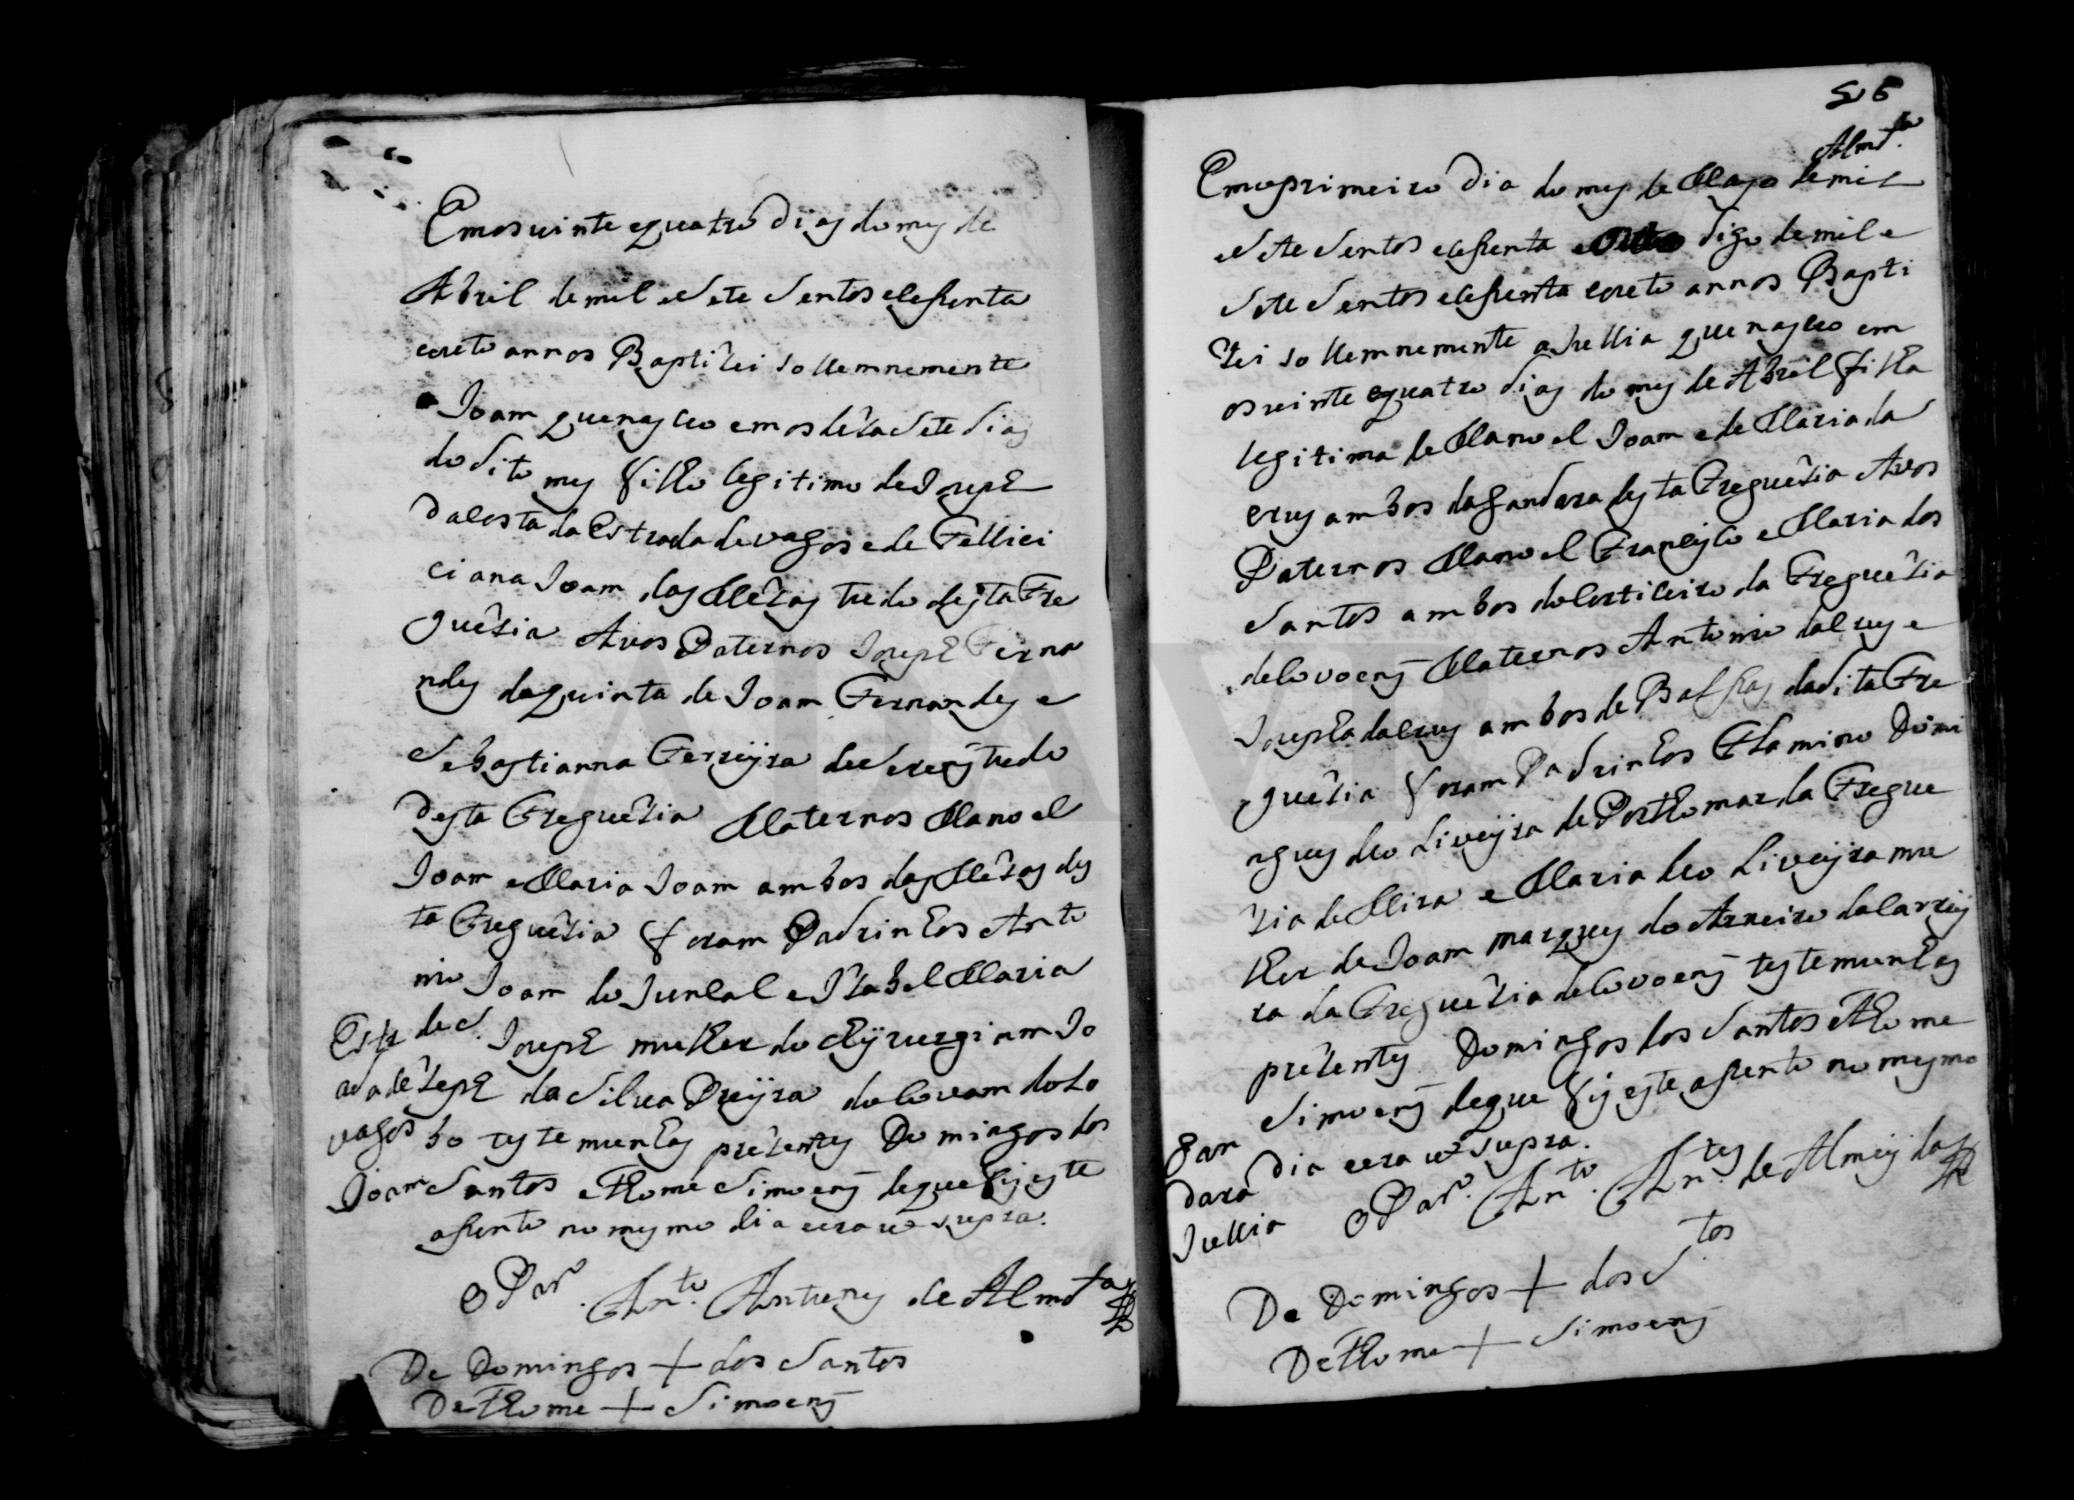 Emos vinte e quatro dias do mes de
Abril de mil e Sete Sentos e sesenta
e oeto annos Baptizei sollemnemente
Joam que nasceo em os dezaSete dias
do dito mes filho legitimo de Joseph
Dacosta da Estrada de vagos e de Fellici
ciana Joam das Mezas tudo desta Fre
guezia Avos Paternos Joseph Ferna
ndes da quinta de Joam Fernandes e
Sebastianna Ferreijra de tudo
desta Freguezia Maternos Manoel
Joam e Maria Joam ambos das Mezas des
ta Freguezia foram Padrinhos Anto
nio Joam do Juncal e Izabel Maria
Joseph mulher do Chijrurgiam Jo
zeph da Silva Preijra do Covam do Lo
bo testemunhas prezentes Domingos dos
Santos e Thome Simoens de que fis este
asento no mesmo dia e era ut supra.
Estr
ada de
vagos
Joam
O Par.º Ant.to Antunes de Almd.ta
De Domingos + dos Santos
De Thome + Simoens
56
Almd.ta
Em o primeiro dia do mes de Mayo de mil
e Sete Sentos e sesenta digo de mil e
Sete Sentos e sesenta e oeto annos Bapti
zei sollemnemente a Jullia que nasceo em
os vinte e quatro dias do mes de Abril filha
legitima de Manoel Joam e de Maria da
Crus ambos da Gandara desta Freguezia Avos
Paternos Manoel Francisco e Maria dos
Santos ambos do Corticeiro da Freguezia
de Covoens Maternos Antonio da Crus e
Josepha da Crus ambos de da dita Fre
guezia foram Padrinhos Flamino Domi
ngues de o Liveijra de Porthomar da Fregue
zia de Mira e Maria de o Liveijra mu
lher de Joam marques do Arneiro da Carrey
ra da Freguezia de Covoens testemunhas
prezentes Domingos dos Santos e Thome
Simoens de que fis este asento no mesmo
dia e era ut supra.
Gan
dara
Jullia
O Par.º Ant.to Ant.tes de Almeijda
De Domingos + dos S.tos
De Thome + Simoens